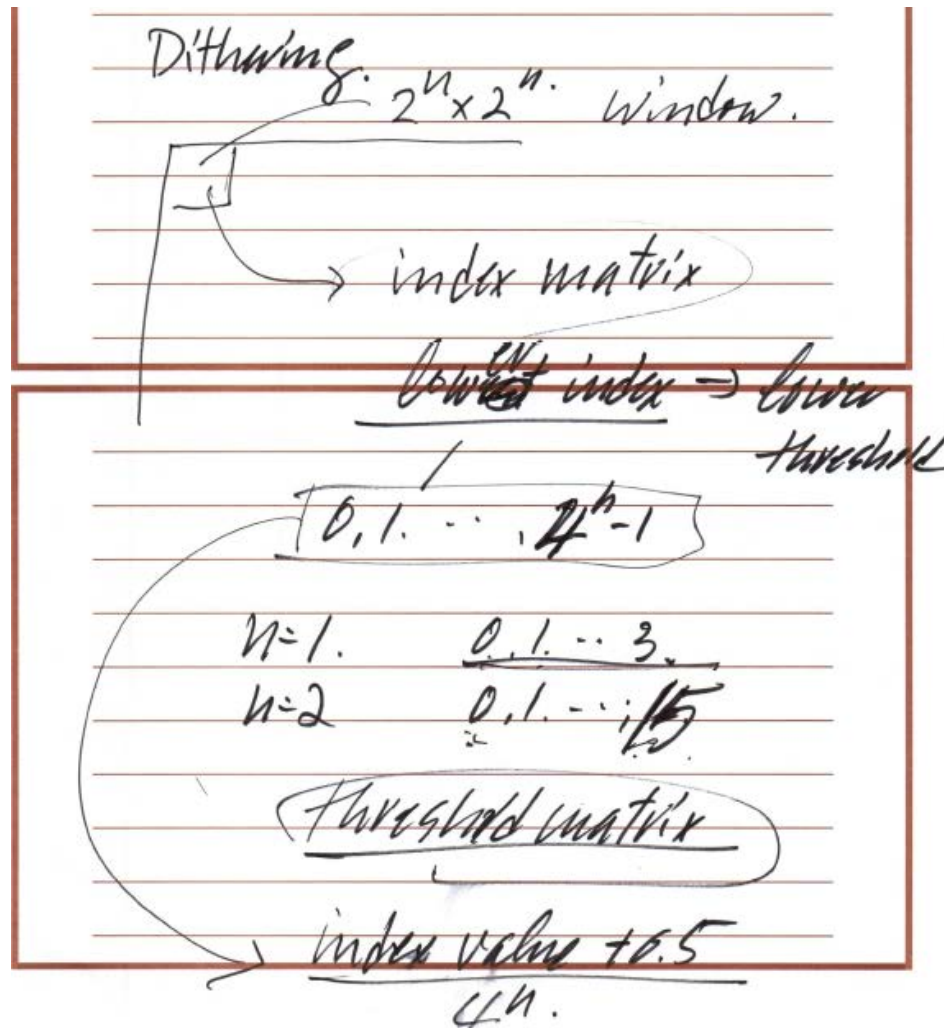 Dithering.
2^n x 2^n. window.
index matrix
lower index → lower
threshold
0, 1. ..., 4^n - 1
n=1. 0, 1. .. 3.
n=2 0, 1. ..., 15
threshold matrix
index value + 0.5
4^n.